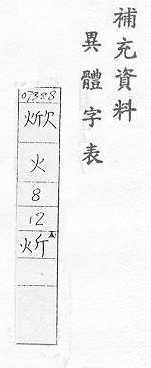 補充資料
異體字表
07388
焮
火
8
12
炘